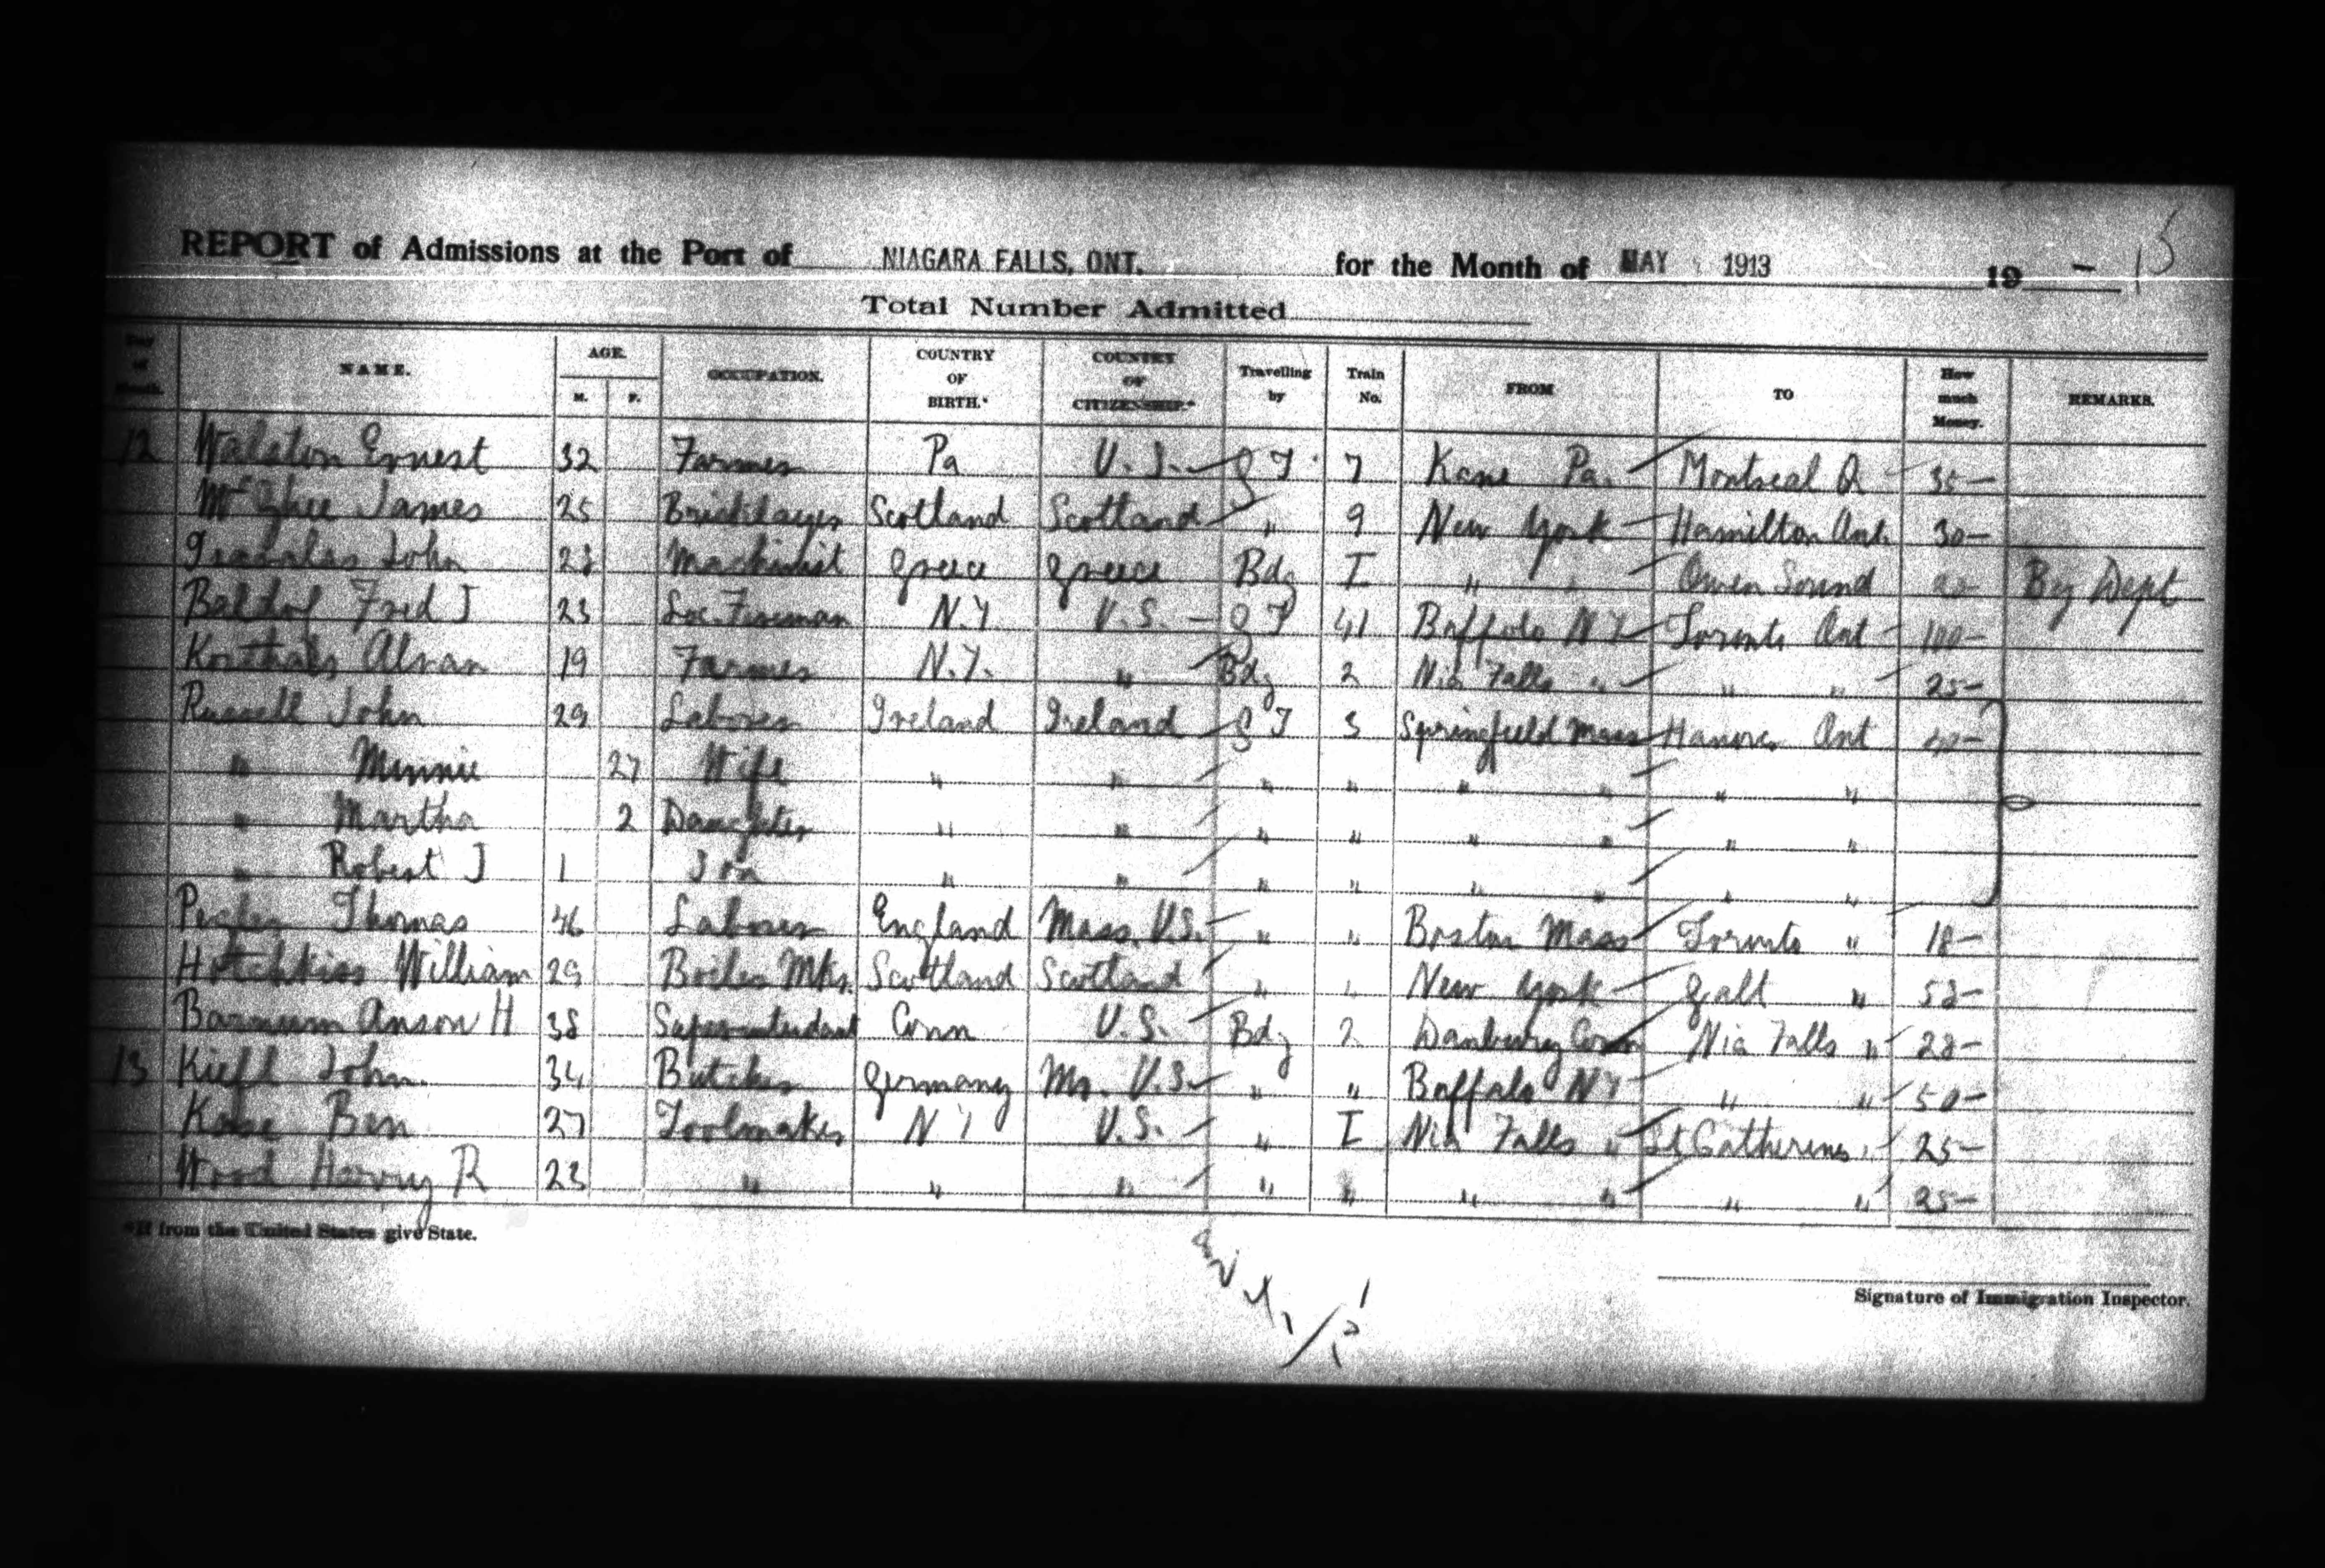 REPORT of Admissions at the Port of NIAGARA FALLS, ONT. for the Month of MAY 1913 19 - 15
Total Number Admitted
Day of Month. NAME. AGE. M. F. OCCUPATION. COUNTRY OF BIRTH.* COUNTRY OF CITIZENSHIP.* Travelling by Train No. FROM TO How much Money. REMARKS.
12 Walston Ernest 32 Farmer Pa U.S. G T 7 Kane Pa. Montreal Q 35-
McGhee James 25 Bricklayer Scotland Scotland " 9 New York Hamilton Ont. 30-
John Machinist Greece Greece Bdg I " " Owen Sound By Dept
Baldof Fred J 23 Loc. Fireman N.Y. U.S. G T 41 Buffalo N Y Toronto Ont 100-
Alvan 19 Farmer N.Y. " Bdg 2 Nia Falls " " " 25-
Russell John 29 Laborer Ireland Ireland G T 3 Springfield Mass Hanover Ont
" Minnie 27 Wife " " " " " " " "
" Martha 2 Daughter " " " " " " " "
" Robert J 1 Son " " " " " " " "
Thomas 46 Laborer England Mass. U.S. " " Boston Mass Toronto " 18-
Hotchkiss William 29 Boiler Mkr. Scotland Scotland " " New York Galt "
Barnum Anson H 38 Superintendant Conn U.S. Bdg 2 Danbury Conn Nia Falls " 28-
13 Kiefl John. 34 Butcher Germany U.S. " " Buffalo N Y " " 50-
Ben 27 Toolmaker N Y U.S. " I Nia Falls " St Catherines " 25-
Wood Harvey R 23 " " " " " " " " " 25-
*If from the United States give State.
Signature of Immigration Inspector.